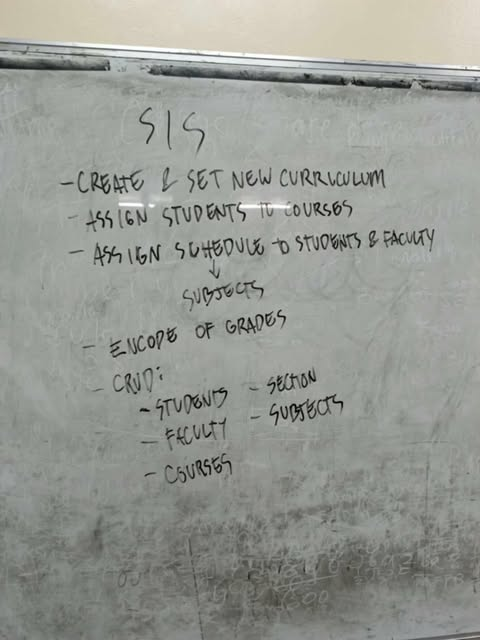 SIS
- CREATE & SET NEW CURRICULUM
- ASSIGN STUDENTS TO COURSES
- ASSIGN SCHEDULE to STUDENTS & FACULTY
↓
SUBJECTS
- ENCODE OF GRADES
- CRUD:
- STUDENTS - SECTION
- FACULTY - SUBJECTS
- COURSES